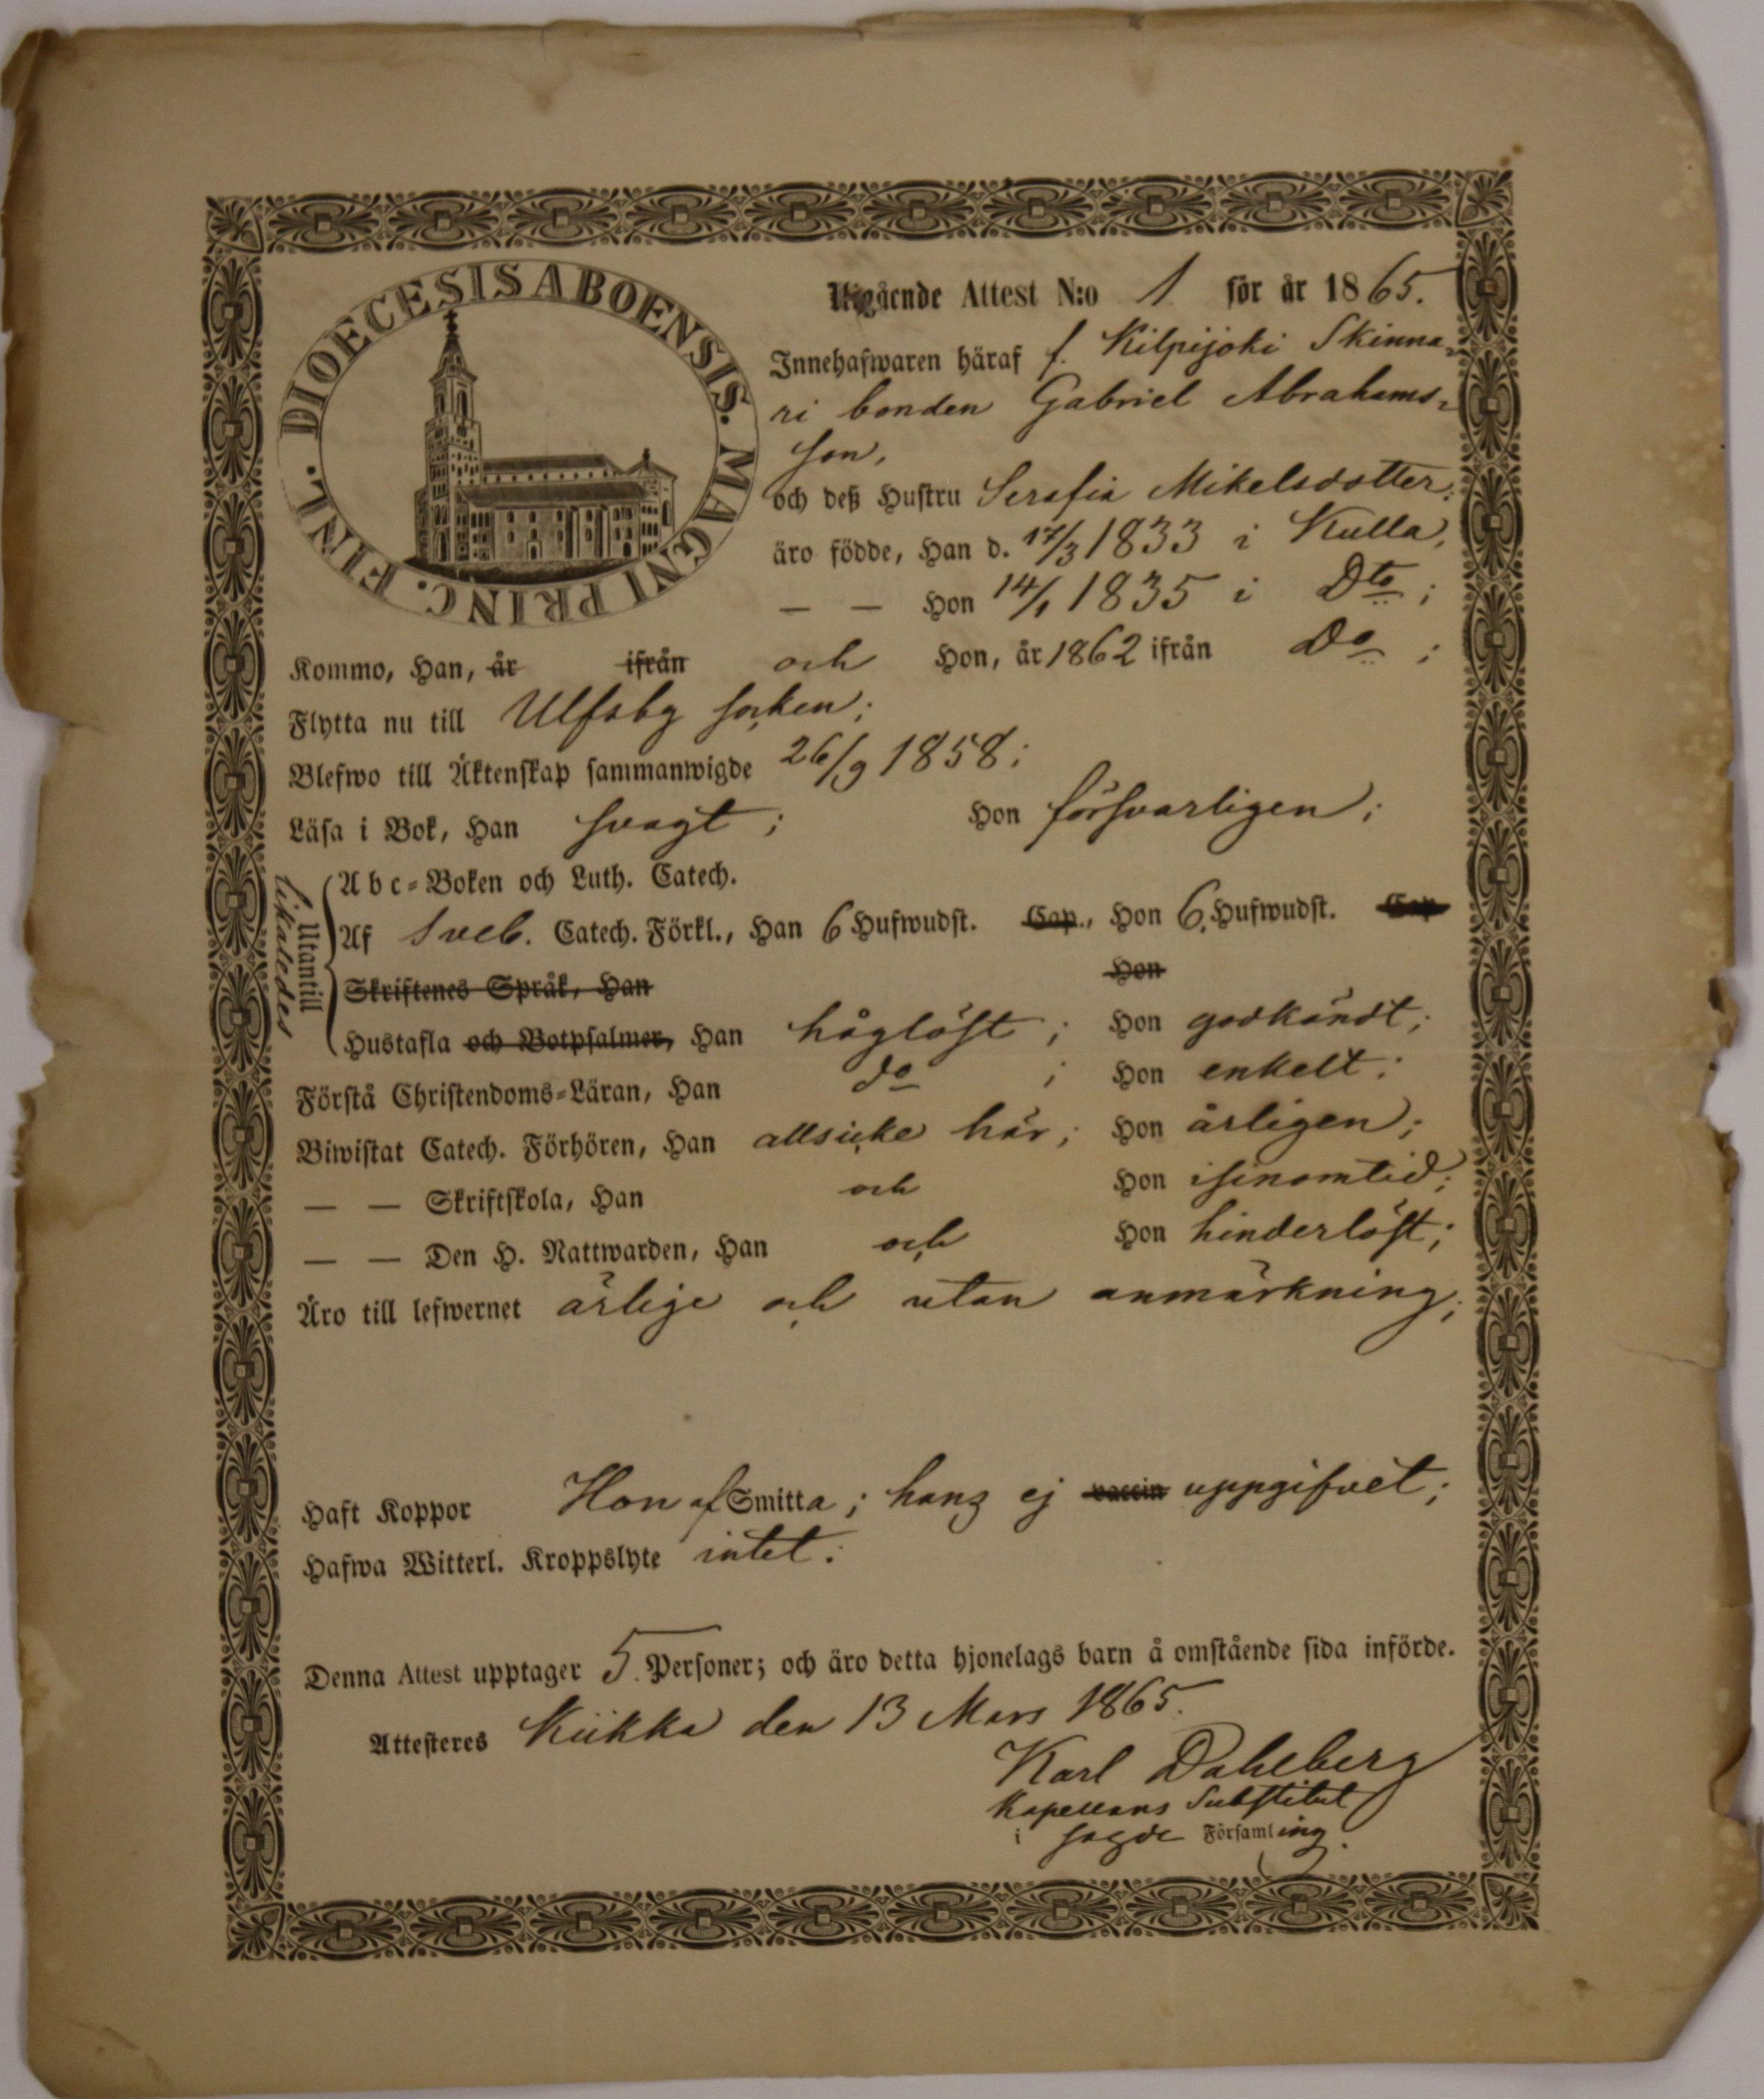 DIOECESIS ABOENSIS. MAGNI PRINC. FINL.
Utgående Attest N:o 1 för år 1865.
Innehafwaren häraf f. Kilpijoki Skinna-
ri bonden Gabriel Abrahams-
son,
och deß Hustru Serafia Mikelsdotter;
äro födde, Han d. 17/3 1833 i Kulla,
— — Hon 14/1 1835 i Dto;
Kommo, Han, år ifrån och Hon, år 1862 ifrån Do;
Flytta nu till Ulfsby socken;
Blefwo till Äktenskap sammanwigde 26/9 1858;
Läsa i Bok, Han svagt; Hon försvarligen;
Utantill
likaledes
Abc-Boken och Luth. Catech.
Af Sveb. Catech. Förkl., Han 6 Hufwudst. Cap., Hon 6 Hufwudst. Cap.
Skriftenes Språk, Han Hon
Hustafla och Botpsalmer, Han håglöst; Hon godkändt;
Förstå Christendoms-Läran, Han do; Hon enkelt;
Biwistat Catech. Förhören, Han allsicke här; Hon årligen;
— — Skriftskola, Han och Hon isinomtid;
— — Den H. Nattwarden, Han och Hon hinderlöst;
Äro till lefwernet ärlige och utan anmärkning;
Haft Koppor Hon af Smitta; hans ej vaccin uppgifvet;
Hafwa Witterl. Kroppslyte intet.
Denna Attest upptager 5 Personer; och äro detta hjonelags barn å omstående sida införde.
Attesteres Kiikka den 13 Mars 1865.
Karl Dahlberg
Kapellans Substitut
i sagde Församling.